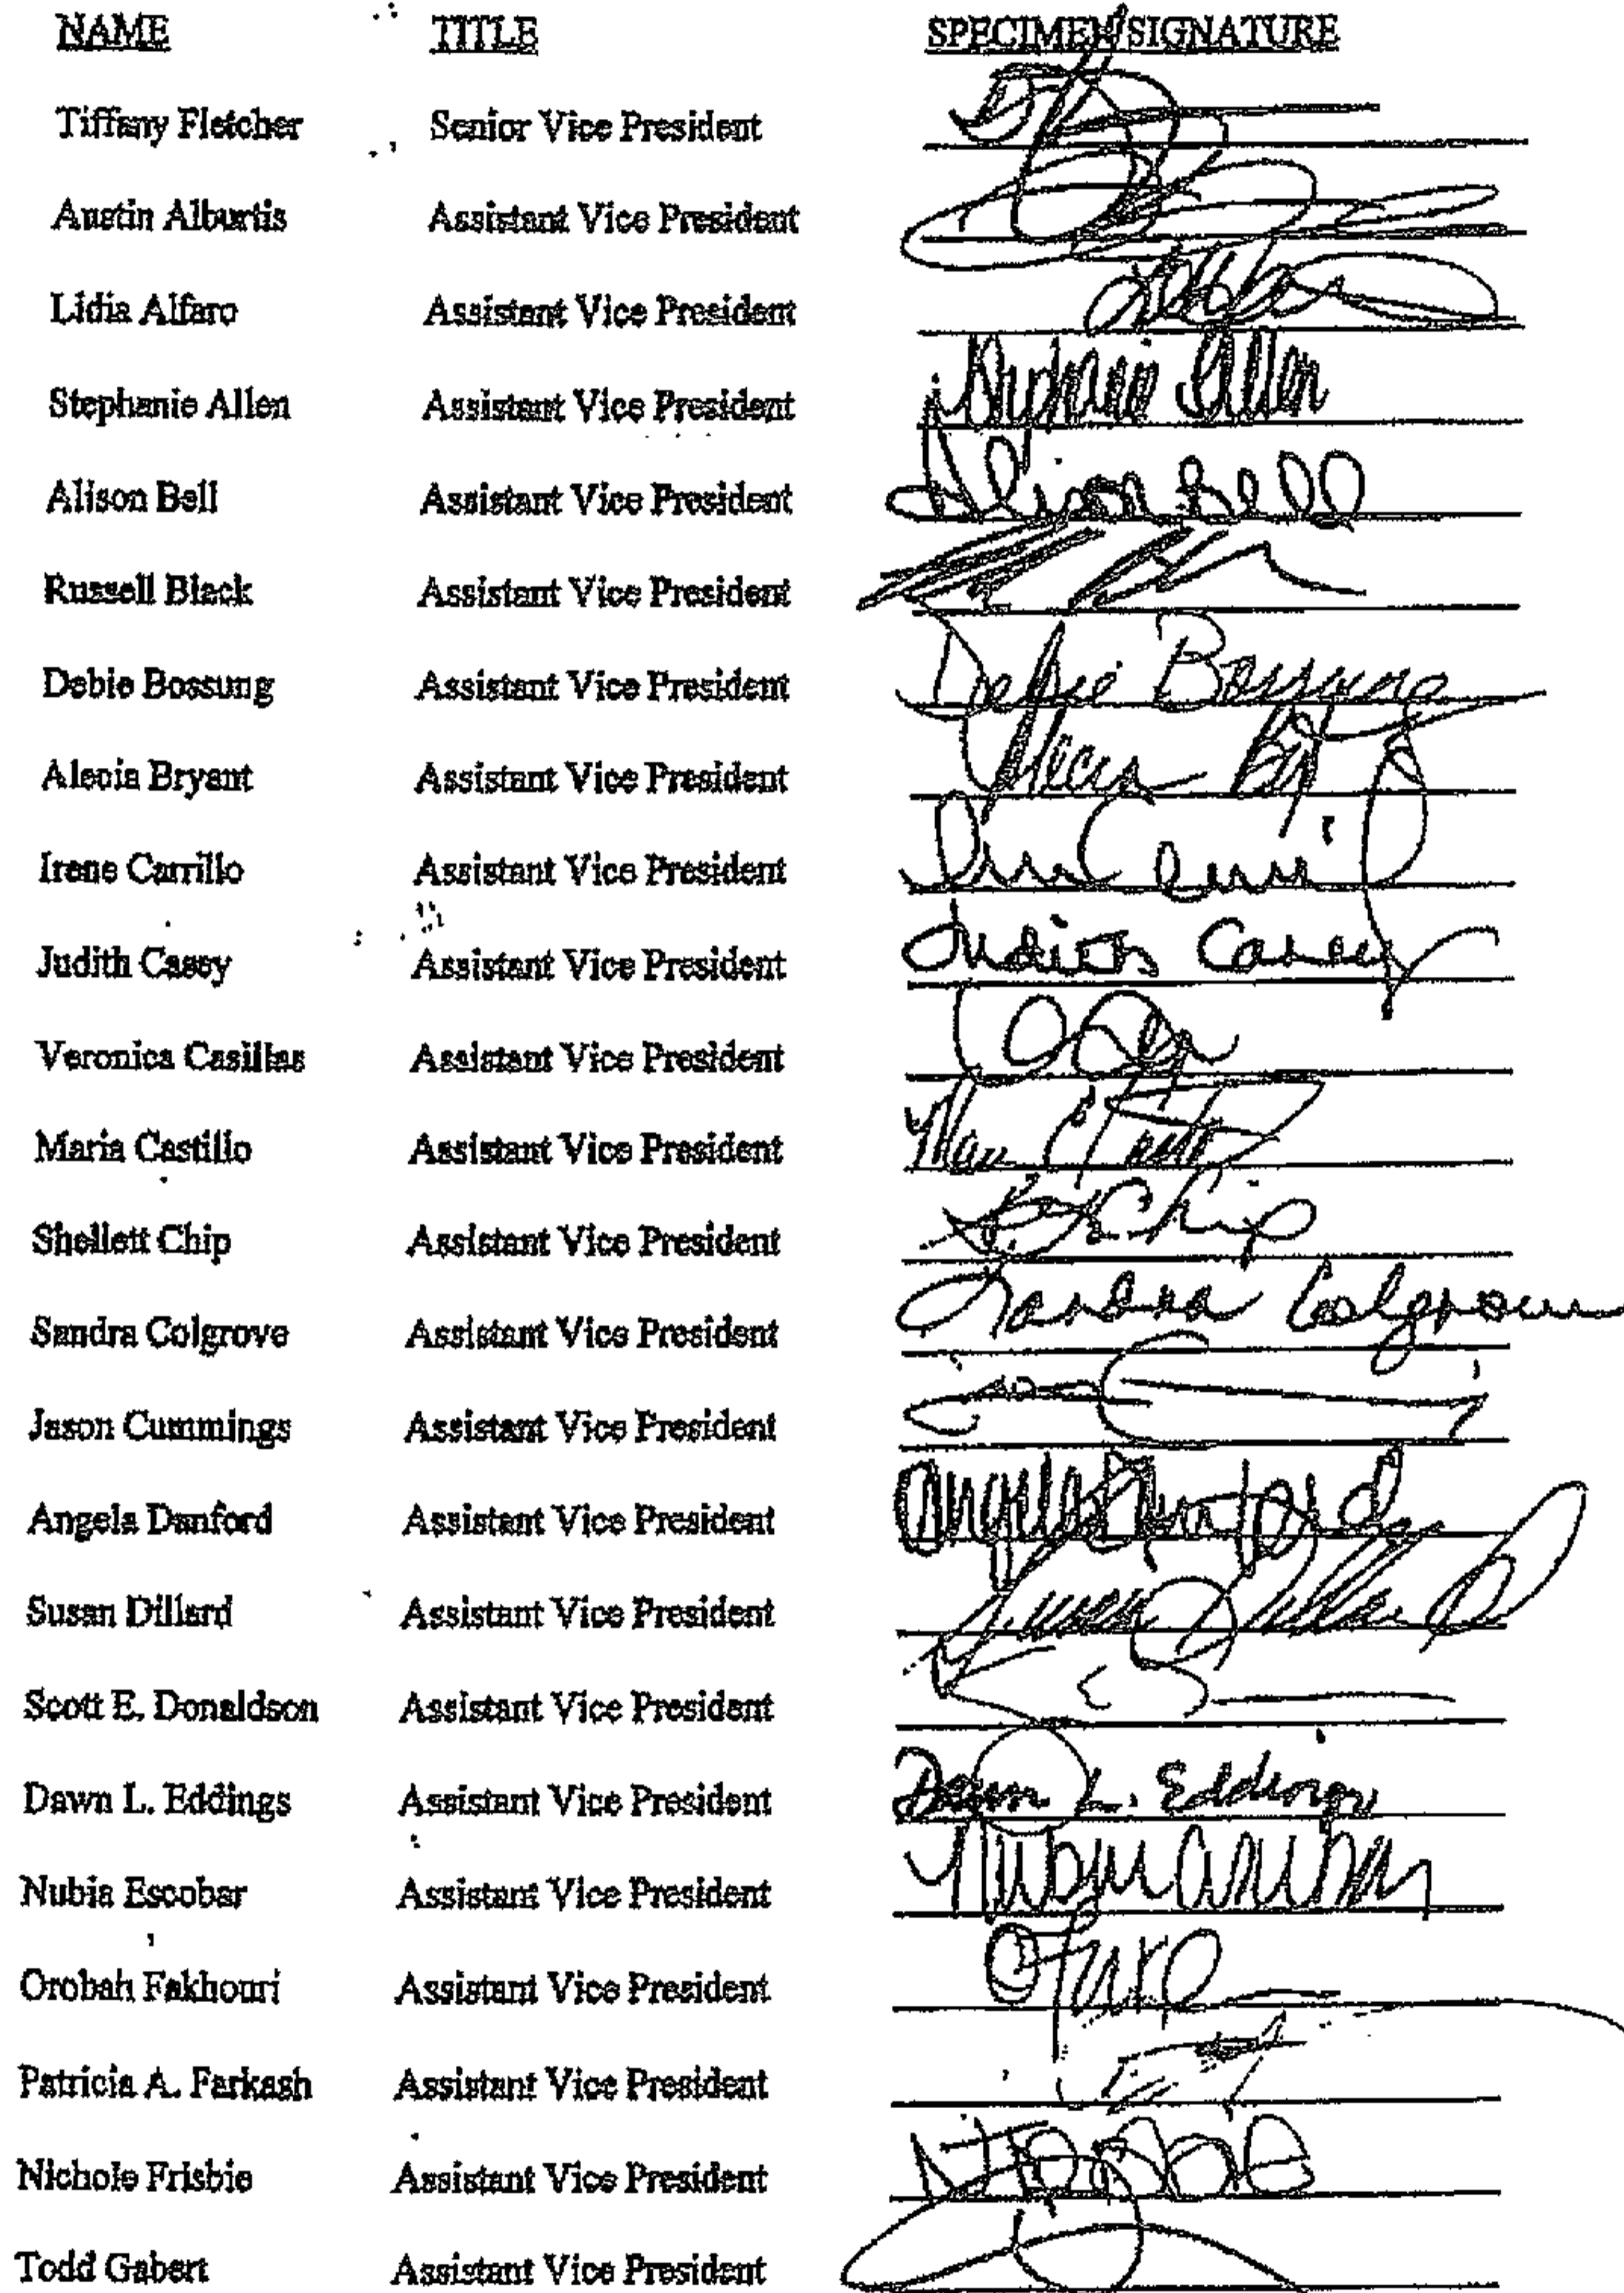 NAME TITLE SPECIMEN SIGNATURE
Tiffany Fletcher Senior Vice President
Austin Alburtis Assistant Vice President
Lidia Alfaro Assistant Vice President
Stephanie Allen Assistant Vice President Stephanie Allen
Alison Bell Assistant Vice President Alison Bell
Russell Black Assistant Vice President
Debie Bossung Assistant Vice President Debie Bossung
Alecia Bryant Assistant Vice President
Irene Carrillo Assistant Vice President
Judith Casey Assistant Vice President Judith Casey
Veronica Casillas Assistant Vice President
Maria Castillo Assistant Vice President
Shellett Chip Assistant Vice President Chip
Sandra Colgrove Assistant Vice President Sandra Colgrove
Jason Cummings Assistant Vice President
Angela Danford Assistant Vice President Angela Danford
Susan Dillard Assistant Vice President Susan Dillard
Scott E. Donaldson Assistant Vice President
Dawn L. Eddings Assistant Vice President Dawn L. Eddings
Nubia Escobar Assistant Vice President
Orobah Fakhouri Assistant Vice President
Patricia A. Farkash Assistant Vice President
Nichole Frisbie Assistant Vice President
Todd Gabert Assistant Vice President